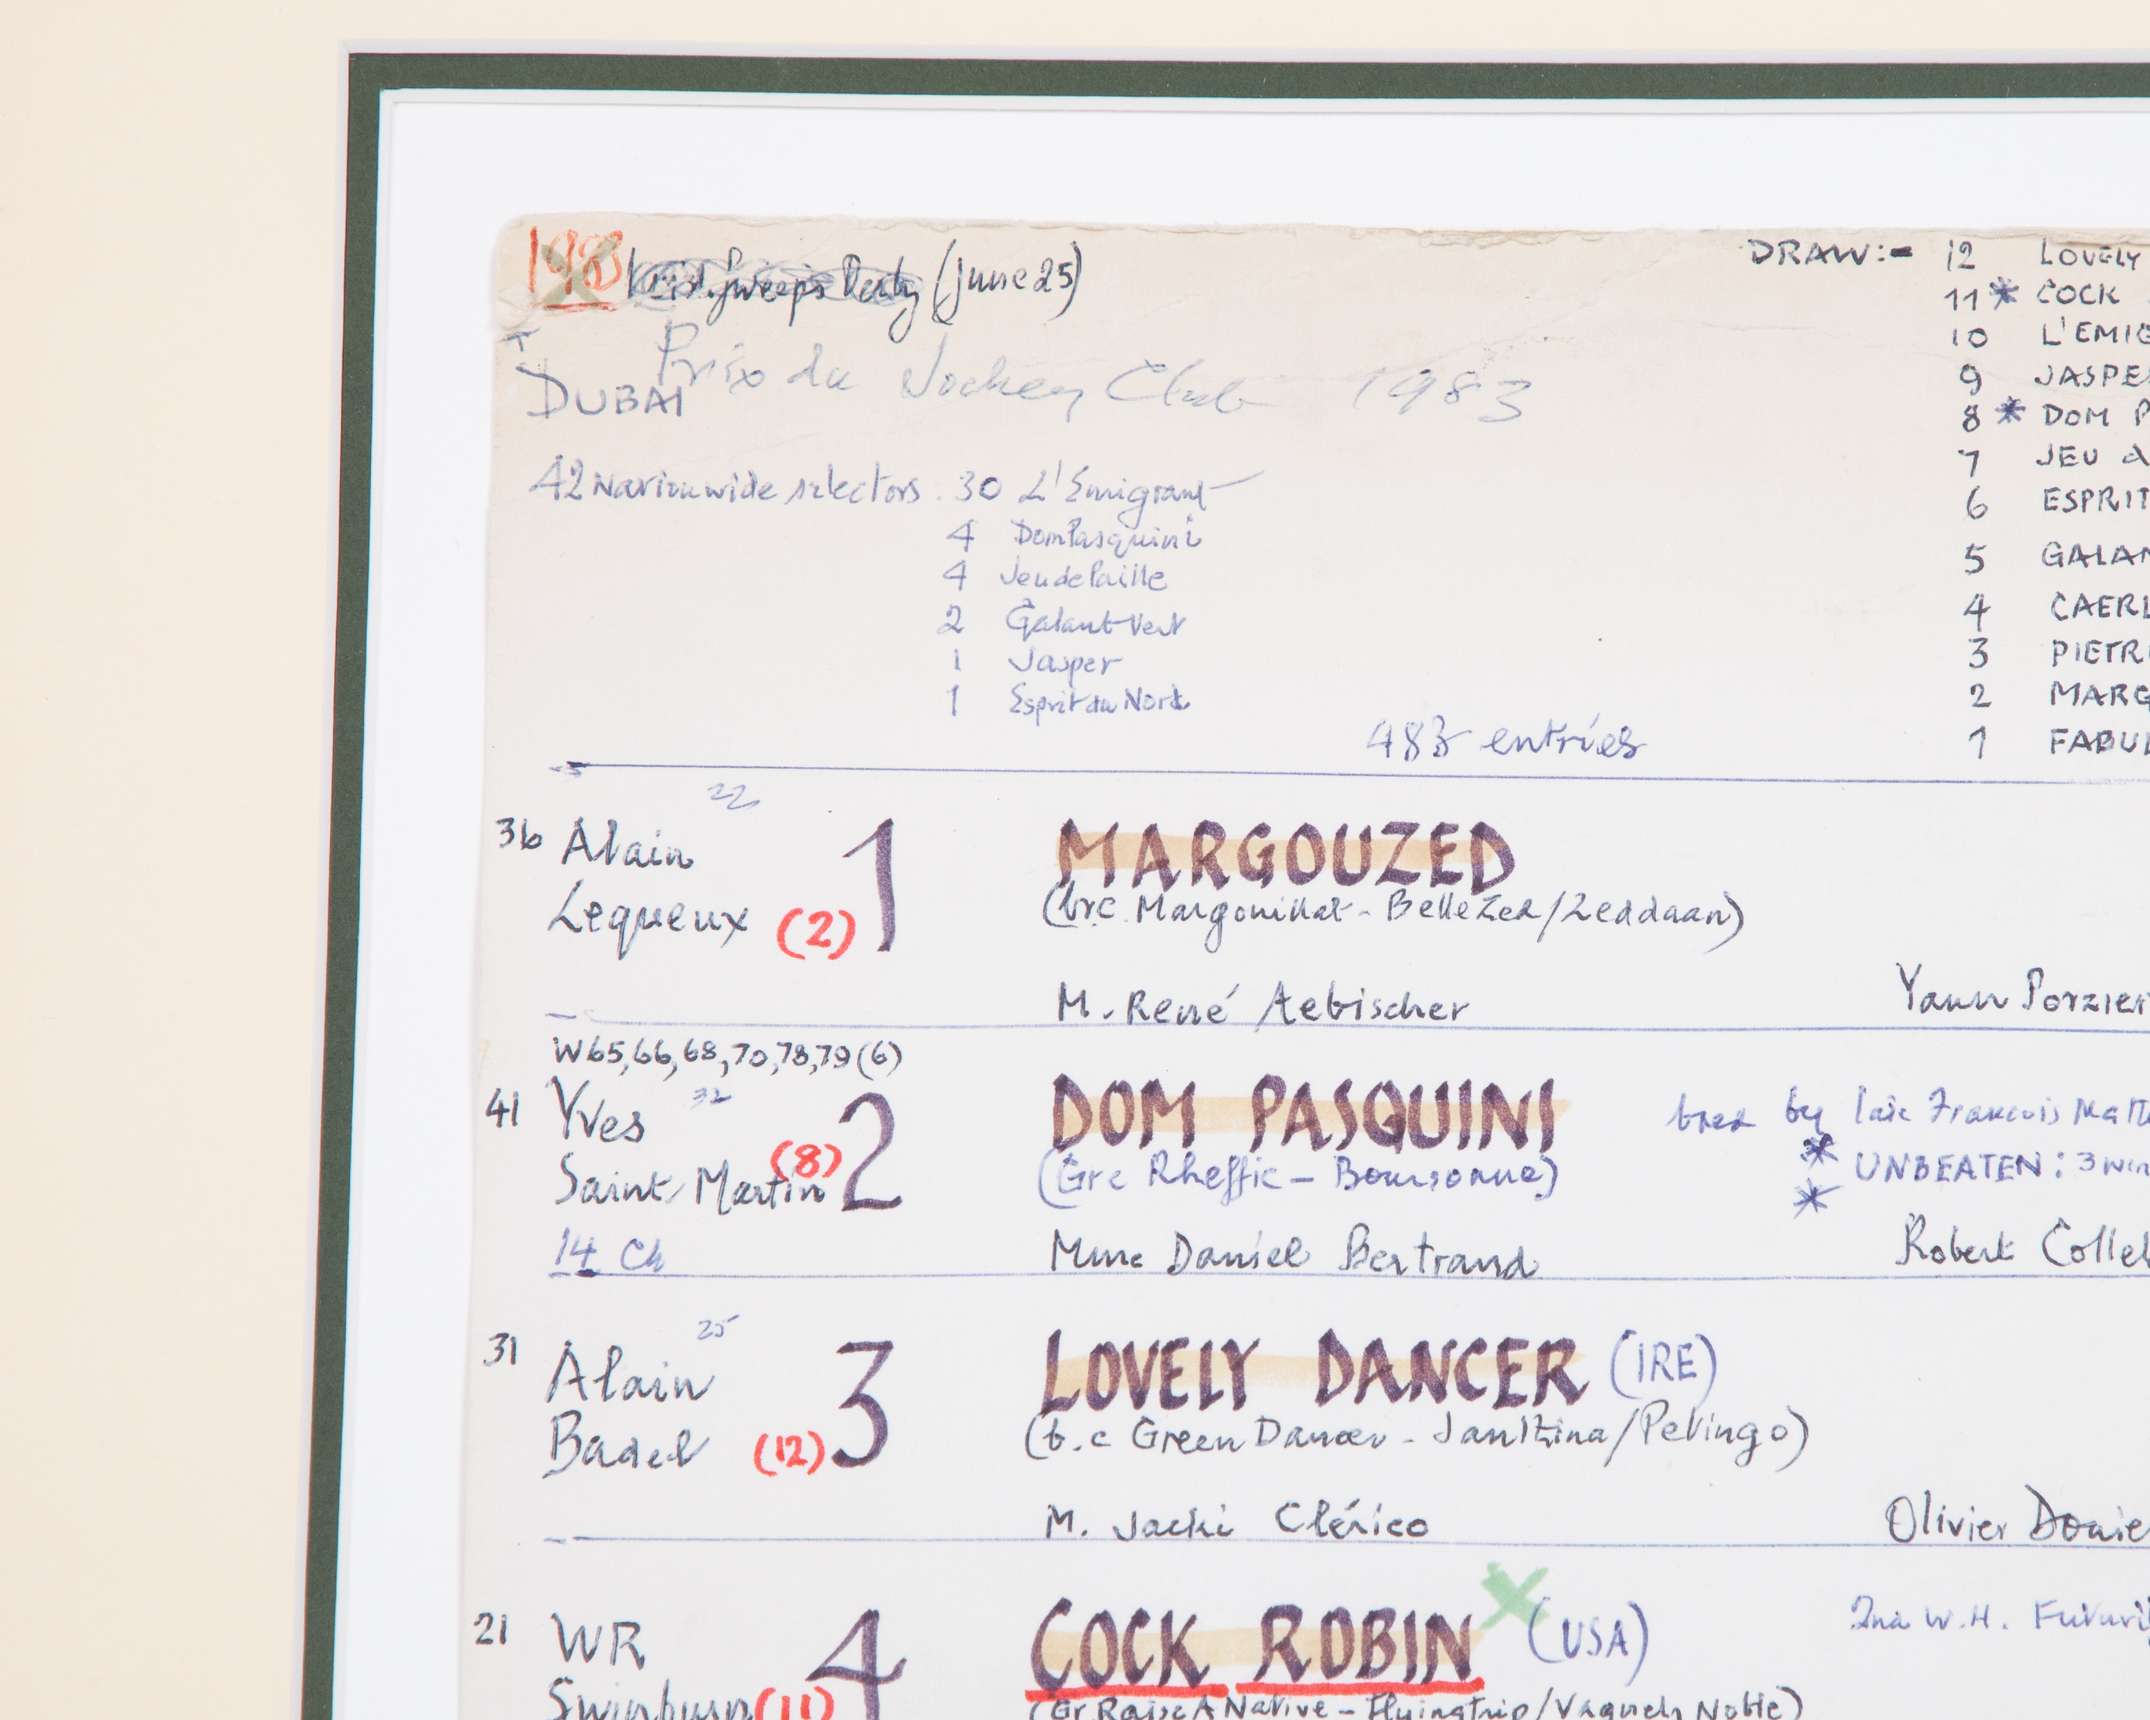 1983 Irish Sweeps Derby (June 25)
Prix du Jockey Club 1983
DUBAI
42 Nationwide selectors. 30 L'Emigrant
4 Dom Pasquini
4 Jeu de Paille
2 Galant Vert
1 Jasper
1 Esprit du Nord
483 entries
DRAW:- 12 LOVELY
11 * COCK
10 L'EMIG
9 JASPE
8 * DOM P
7 JEU d
6 ESPRIT
5 GALAN
4 CAERL
3 PIETR
2 MARG
1 FABUL
22
36 Alain
Lequeux (2) 1 MARGOUZED
(br c Margouillat - Belle Zed/Zeddaan)
M. René Aebischer Yann Porzier
W65,66,68,70,78,79 (6)
41 Yves 32
Saint-Martin (8) 2 DOM PASQUINI
bred by late Francois Mat
(Gr c Rheffic - Boursonne)
* UNBEATEN: 3 win
*
14 Ch Mme Daniel Bertrand Robert Collet
25
31 Alain
Badel (12) 3 LOVELY DANCER (IRE)
(b.c Green Dancer - Janthina/Petingo)
M. Jacki Clérico Olivier Douie
21 WR
Swinburn (11) 4 COCK ROBIN (USA)
2nd W.H. Futuri
(Gr Raise A Native - Flying trip/Vaguely Noble)